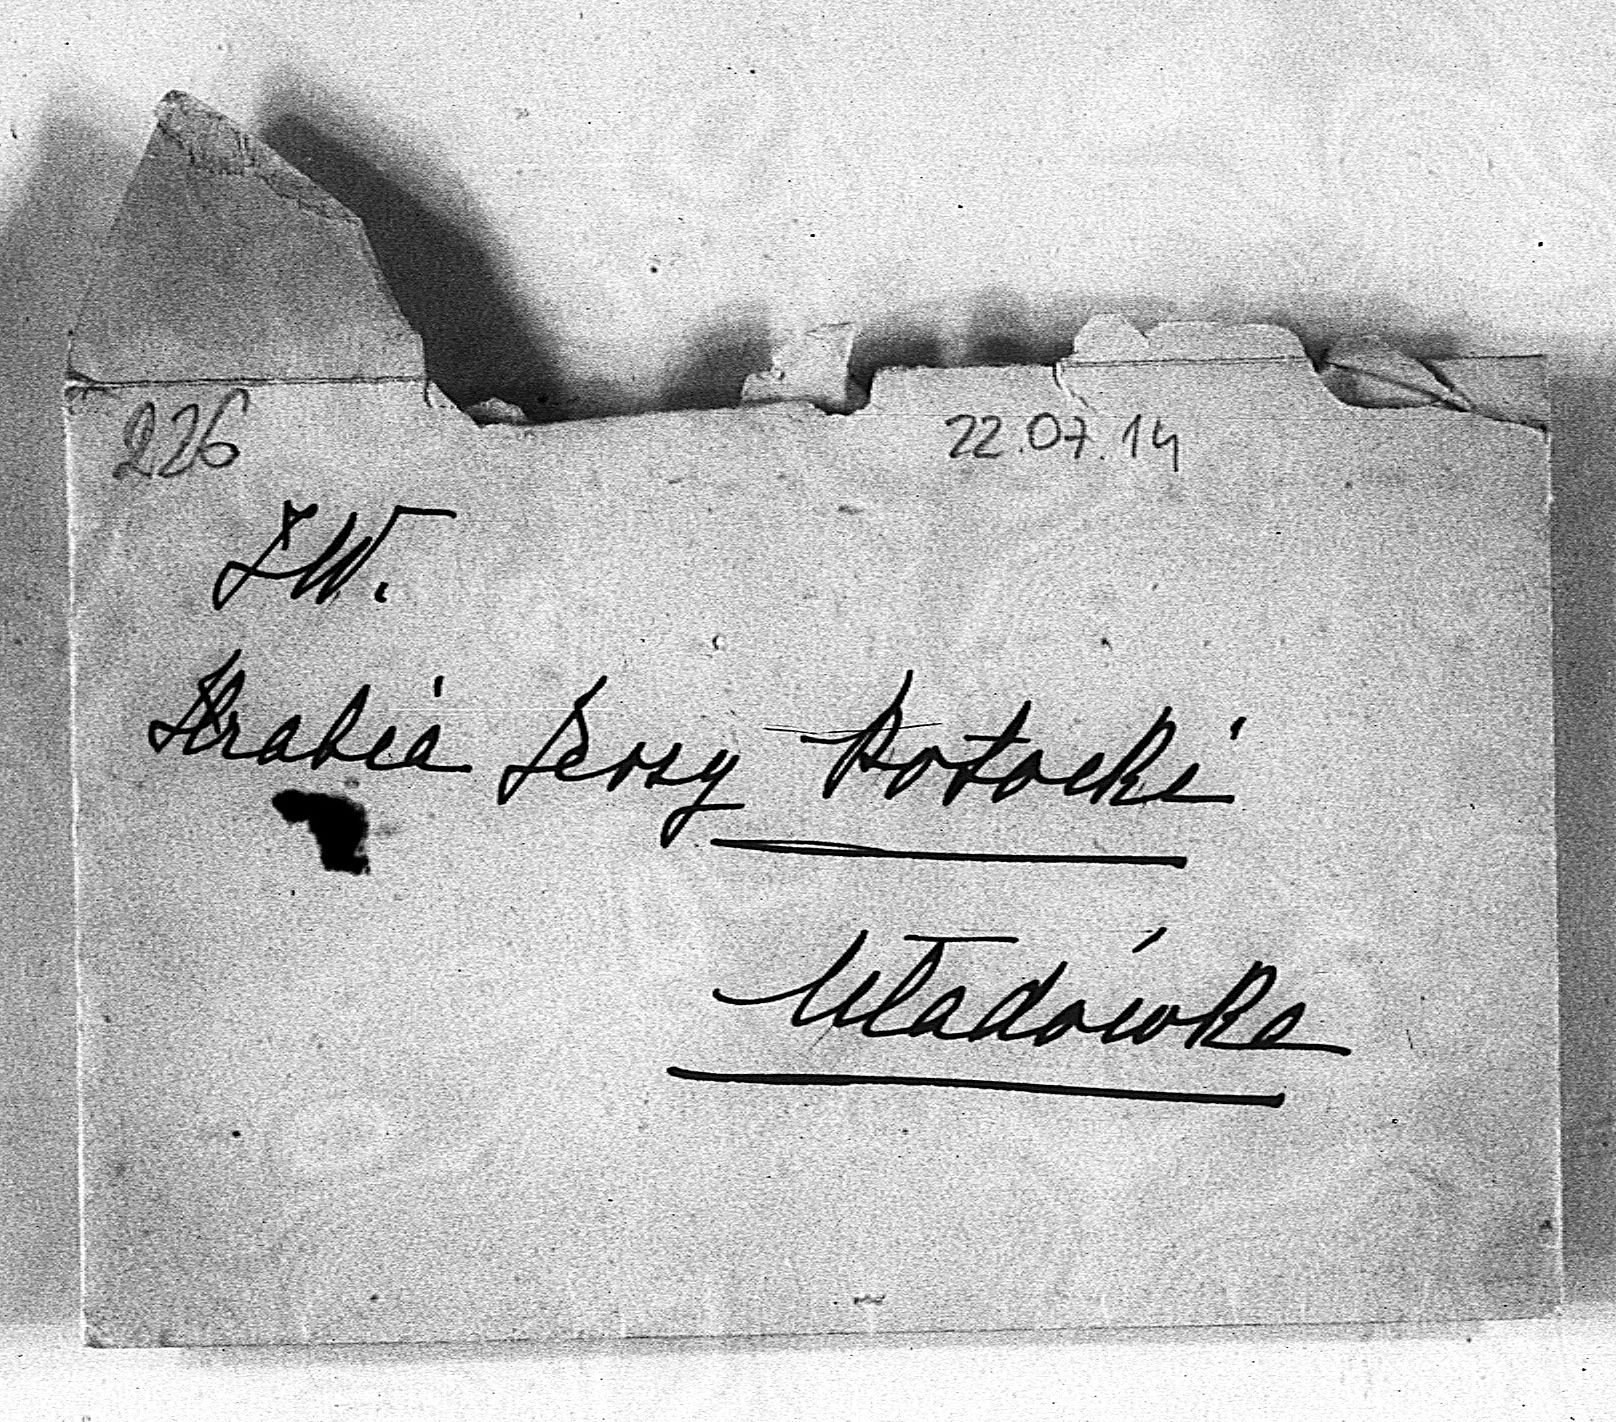 226
22.07.14
JW.
Hrabia Jerzy Potocki
Uładówka